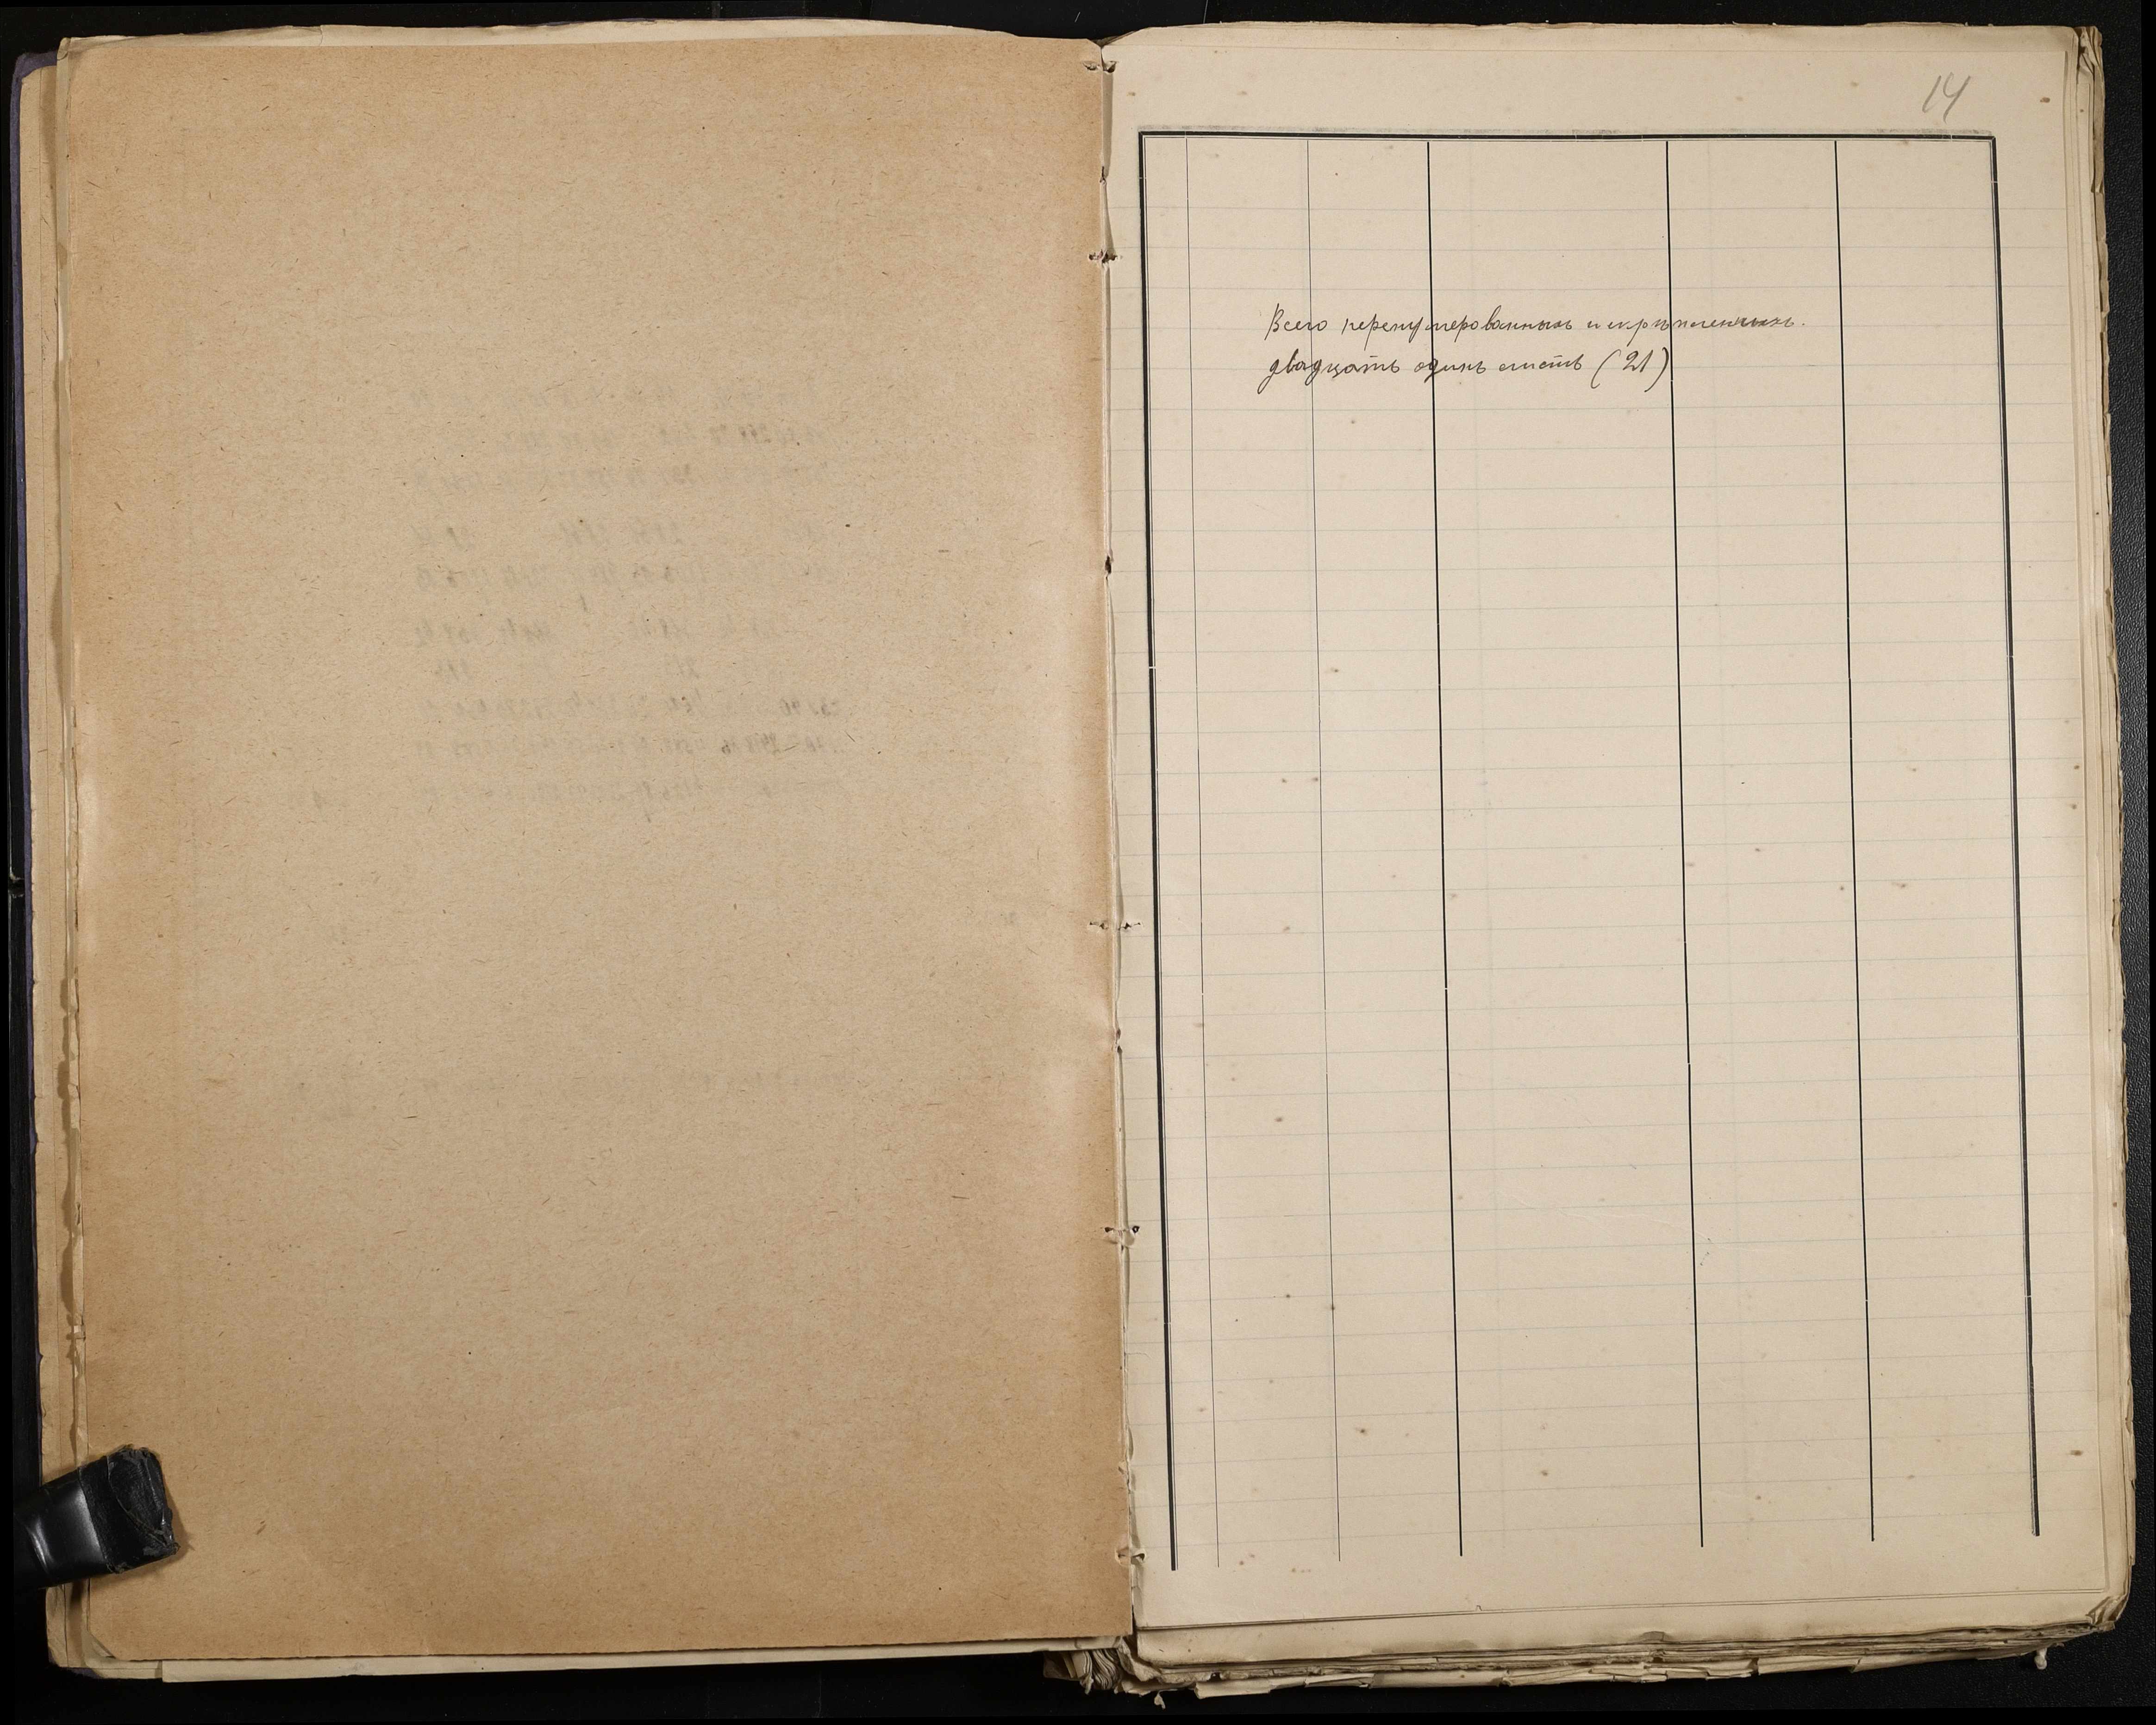 14
Всего перенумерованныхъ и скрѣпленныхъ.
двадцать одинъ листъ (21)